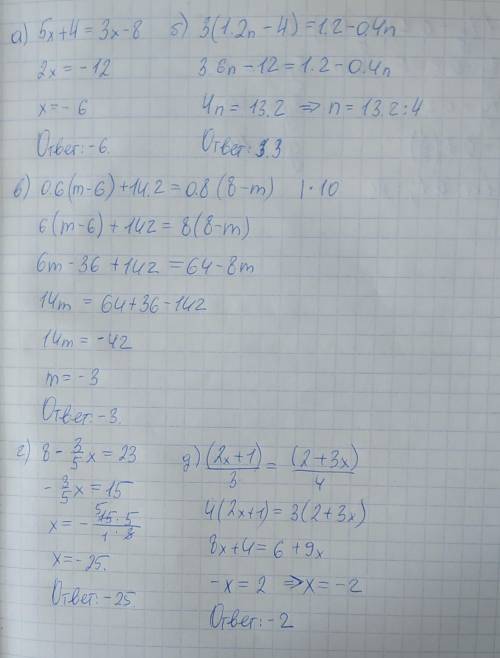 а) 5x+4=3x-8
2x=-12
x=-6
Ответ:-6.
б) 3(1.2n-4)=1.2-0.4n
3.6n-12=1.2-0.4n
4n=13.2 ⇒ n=13.2:4
Ответ: 3.3
в) 0.6(m-6)+14.2=0.8(8-m) |·10
6(m-6)+142=8(8-m)
6m-36+142=64-8m
14m=64+36-142
14m=-42
m=-3
Ответ:-3.
г) 8-3/5x=23
-3/5x=15
x=-15·5/1·3
x=-25.
Ответ:-25.
д) (2x+1)/3=(2+3x)/4
4(2x+1)=3(2+3x)
8x+4=6+9x
-x=2 ⇒x=-2
Ответ:-2